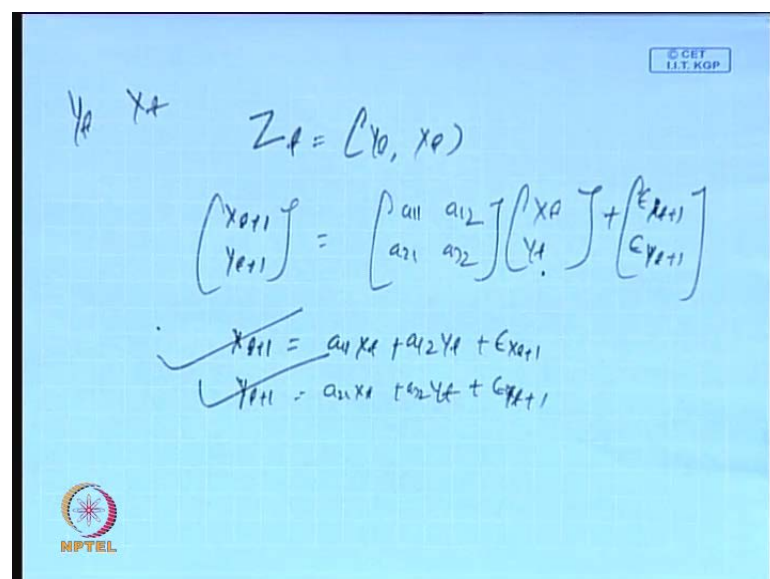 © CET
I.I.T. KGP
Yt Xt
Zt = (Yt, Xt)
[Xt+1 Yt+1] = [a11 a12 a21 a22] [Xt Yt] + [Ext+1 Eyt+1]
Xt+1 = a11 Xt + a12 Yt + Ext+1
Yt+1 = a21 Xt + a22 Yt + Eyt+1
NPTEL